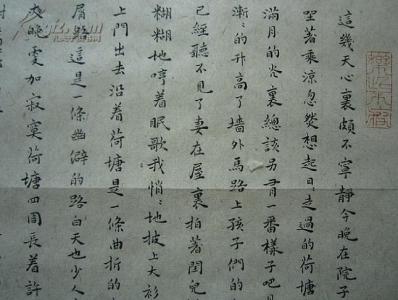 這幾天心裏頗不寧靜今晚在院子
坐著乘涼忽然想起日〻走過的荷塘
滿月的光裏總該另有一番樣子吧
漸〻的升高了牆外馬路上孩子們的
已經聽不見了妻在屋裏拍著閏兒
糊糊地哼着眠歌我悄〻地披上大衫
上門出去沿着荷塘是一條曲折的
屑路這是一條幽僻的路白天也少人
夜晚更加寂寞荷塘四周長着許